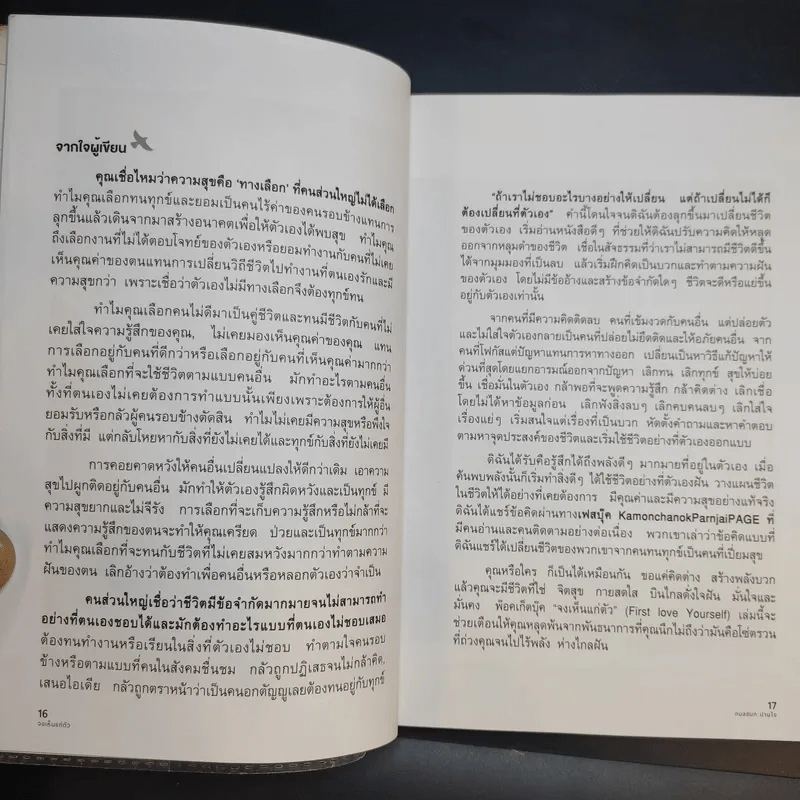 จากใจผู้เขียน
คุณเชื่อไหมว่าความสุขคือ ‘ทางเลือก’ ที่คนส่วนใหญ่ไม่ได้เลือก
ทำไมคุณเลือกทนทุกข์และยอมเป็นคนไร้ค่าของคนรอบข้างแทนการ
ลุกขึ้นแล้วเดินจากมาสร้างอนาคตเพื่อให้ตัวเองได้พบสุข ทำไมคุณ
ถึงเลือกงานที่ไม่ได้ตอบโจทย์ของตัวเองหรือยอมทำงานกับคนที่ไม่เคย
เห็นคุณค่าของตนแทนการเปลี่ยนวิถีชีวิตไปทำงานที่ตนเองรักและมี
ความสุขกว่า เพราะเชื่อว่าตัวเองไม่มีทางเลือกจึงต้องทุกข์ทน
ทำไมคุณเลือกคนไม่ดีมาเป็นคู่ชีวิตและทนมีชีวิตกับคนที่ไม่
เคยใส่ใจความรู้สึกของคุณ, ไม่เคยมองเห็นคุณค่าของคุณ แทน
การเลือกอยู่กับคนที่ดีกว่าหรือเลือกอยู่กับคนที่เห็นคุณค่ามากกว่า
ทำไมคุณเลือกที่จะใช้ชีวิตตามแบบคนอื่น มักทำอะไรตามคนอื่น
ทั้งที่ตนเองไม่เคยต้องการทำแบบนั้นเพียงเพราะต้องการให้ผู้อื่น
ยอมรับหรือกลัวผู้คนรอบข้างตัดสิน ทำไมไม่เคยมีความสุขหรือพึงใจ
กับสิ่งที่มี แต่กลับโหยหากับสิ่งที่ยังไม่เคยได้และทุกข์กับสิ่งที่ยังไม่เคยมี
การคอยคาดหวังให้คนอื่นเปลี่ยนแปลงให้ดีกว่าเดิม เอาความ
สุขไปผูกติดอยู่กับคนอื่น มักทำให้ตัวเองรู้สึกผิดหวังและเป็นทุกข์ มี
ความสุขยากและไม่จีรัง การเลือกที่จะเก็บความรู้สึกหรือไม่กล้าที่จะ
แสดงความรู้สึกของตนจะทำให้คุณเครียด ป่วยและเป็นทุกข์มากกว่า
ทำไมคุณเลือกที่จะทนกับชีวิตที่ไม่เคยสมหวังมากกว่าทำตามความ
ฝันของตน เลิกอ้างว่าต้องทำเพื่อคนอื่นหรือหลอกตัวเองว่าจำเป็น
คนส่วนใหญ่เชื่อว่าชีวิตมีข้อจำกัดมากมายจนไม่สามารถทำ
อย่างที่ตนเองชอบได้และมักต้องทำอะไรแบบที่ตนเองไม่ชอบเสมอ
ต้องทนทำงานหรือเรียนในสิ่งที่ตัวเองไม่ชอบ ทำตามใจคนรอบ
ข้างหรือตามแบบที่คนในสังคมชื่นชม กลัวถูกปฏิเสธจนไม่กล้าคิด,
เสนอไอเดีย กลัวถูกตราหน้าว่าเป็นคนอกตัญญูเลยต้องทนอยู่กับทุกข์
16
จงเห็นแก่ตัว
“ถ้าเราไม่ชอบอะไรบางอย่างให้เปลี่ยน แต่ถ้าเปลี่ยนไม่ได้ก็
ต้องเปลี่ยนที่ตัวเอง” คำนี้โดนใจจนดิฉันต้องลุกขึ้นมาเปลี่ยนชีวิต
ของตัวเอง เริ่มอ่านหนังสือดีๆ ที่ช่วยให้ดิฉันปรับความคิดให้หลุด
ออกจากหลุมดำของชีวิต เชื่อในสัจธรรมที่ว่าเราไม่สามารถมีชีวิตดีขึ้น
ได้จากมุมมองที่เป็นลบ แล้วเริ่มฝึกคิดเป็นบวกและทำตามความฝัน
ของตัวเอง โดยไม่มีข้ออ้างและสร้างข้อจำกัดใดๆ ชีวิตจะดีหรือแย่ขึ้น
อยู่กับตัวเองเท่านั้น
จากคนที่มีความคิดติดลบ คนที่เข้มงวดกับคนอื่น แต่ปล่อยตัว
และไม่ใส่ใจตัวเองกลายเป็นคนที่ปล่อยไม่ยึดติดและให้อภัยคนอื่น จาก
คนที่โฟกัสแต่ปัญหาแทนการหาทางออก เปลี่ยนเป็นหาวิธีแก้ปัญหาให้
ด่วนที่สุดโดยแยกอารมณ์ออกจากปัญหา เลิกทน เลิกทุกข์ สุขให้บ่อย
ขึ้น เชื่อมั่นในตัวเอง กล้าพอที่จะพูดความรู้สึก กล้าคิดต่าง เลิกเชื่อ
โดยไม่ได้หาข้อมูลก่อน เลิกฟังสิ่งลบๆ เลิกคบคนลบๆ เลิกใส่ใจ
เรื่องแย่ๆ เริ่มสนใจแต่เรื่องที่เป็นบวก หัดตั้งคำถามและหาคำตอบ
ตามหาจุดประสงค์ของชีวิตและเริ่มใช้ชีวิตอย่างที่ตัวเองออกแบบ
ดิฉันได้รับคือรู้สึกได้ถึงพลังดีๆ มากมายที่อยู่ในตัวเอง เมื่อ
ค้นพบพลังนั้นก็เริ่มทำสิ่งดีๆ ได้ใช้ชีวิตอย่างที่ตัวเองฝัน วางแผนชีวิต
ในชีวิตให้ได้อย่างที่เคยต้องการ มีคุณค่าและมีความสุขอย่างแท้จริง
ดิฉันได้แชร์ข้อคิดผ่านทางเฟสบุ๊ค KamonchanokParnjaiPAGE ที่
มีคนอ่านและคนติดตามอย่างต่อเนื่อง พวกเขาเล่าว่าข้อคิดแบบที่
ดิฉันแชร์ได้เปลี่ยนชีวิตของพวกเขาจากคนทนทุกข์เป็นคนที่เปี่ยมสุข
คุณหรือใคร ก็เป็นได้เหมือนกัน ขอแค่คิดต่าง สร้างพลังบวก
แล้วคุณจะมีชีวิตที่ใช่ จิตสุข กายสดใส บินไกลดั่งใจฝัน มั่นใจและ
มั่นคง พ๊อคเก็ตบุ๊ค “จงเห็นแก่ตัว” (First love Yourself) เล่มนี้จะ
ช่วยเตือนให้คุณหลุดพ้นจากพันธนาการที่คุณนึกไม่ถึงว่ามันคือโซ่ตรวน
ที่ถ่วงคุณจนไปไร้พลัง ห่างไกลฝัน
17
กมลชนก ปานใจ